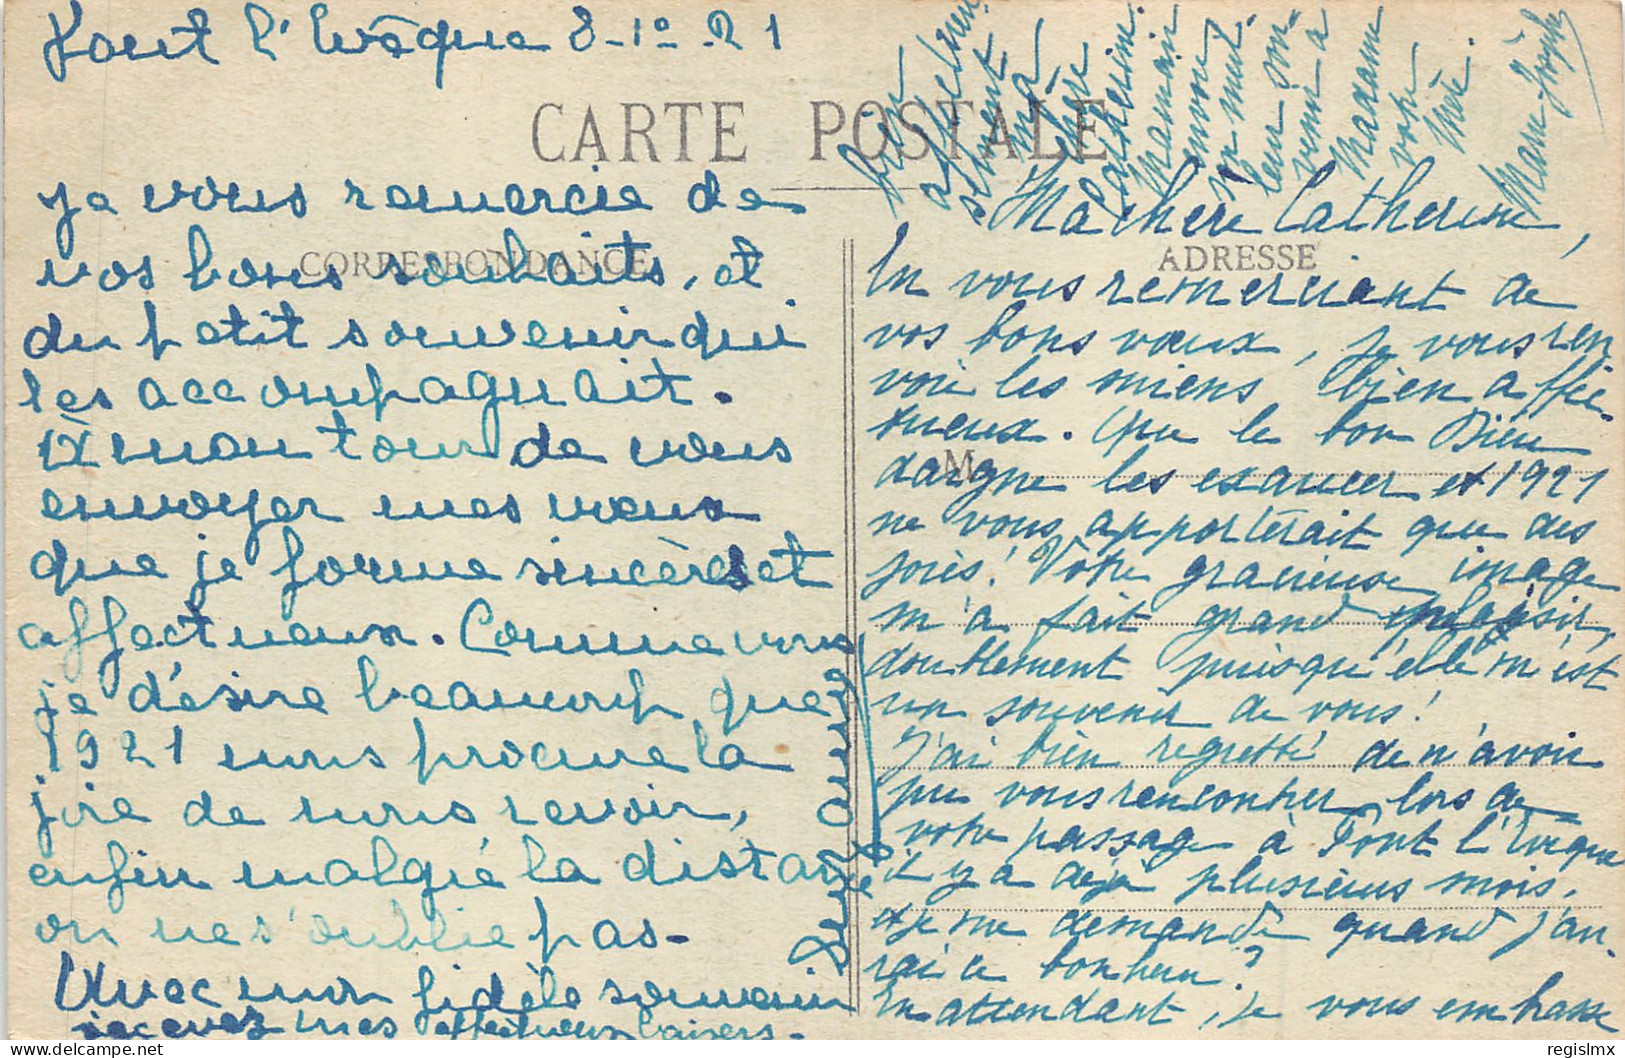 Pont l'Evêque 8-1o-21
CARTE POSTALE
CORRESPONDANCE
Je vous remercie de
vos bons souhaits, et
du petit souvenir qui
les accompagnait.
A mon tour de vous
envoyer mes vœux
que je forme sincères et
affectueux. Comme vous
je désire beaucoup que
1921 nous procure la
joie de nous revoir,
enfin malgré la distance
on ne s'oublie pas-
Avec mon fidèle souvenir
recevez mes affectueux baisers-
ADRESSE
M
Ma chère Catherine,
En vous remerciant de
vos bons vœux, je vous ren
voie les miens, bien affec-
tueux. Que le bon Dieu
daigne les exaucer et 1921
ne vous apporterait que des
joies! Votre gracieuse image
m'a fait grand plaisir,
doublement puisqu'elle m'est
un souvenir de vous!
J'ai bien regretté de n'avoir
pu vous rencontrer lors de
votre passage à Pont l'Evêque
il y a déjà plusieurs mois,
et je me demande quand j'au-
rai ce bonheur?
En attendant, je vous embrasse
bien
affectueu
sement
ma
chère
Catherine.
Maman
envoie
leur sou-
venir à
Madame
votre
Mère.
Marie-Josèphe
regislmx